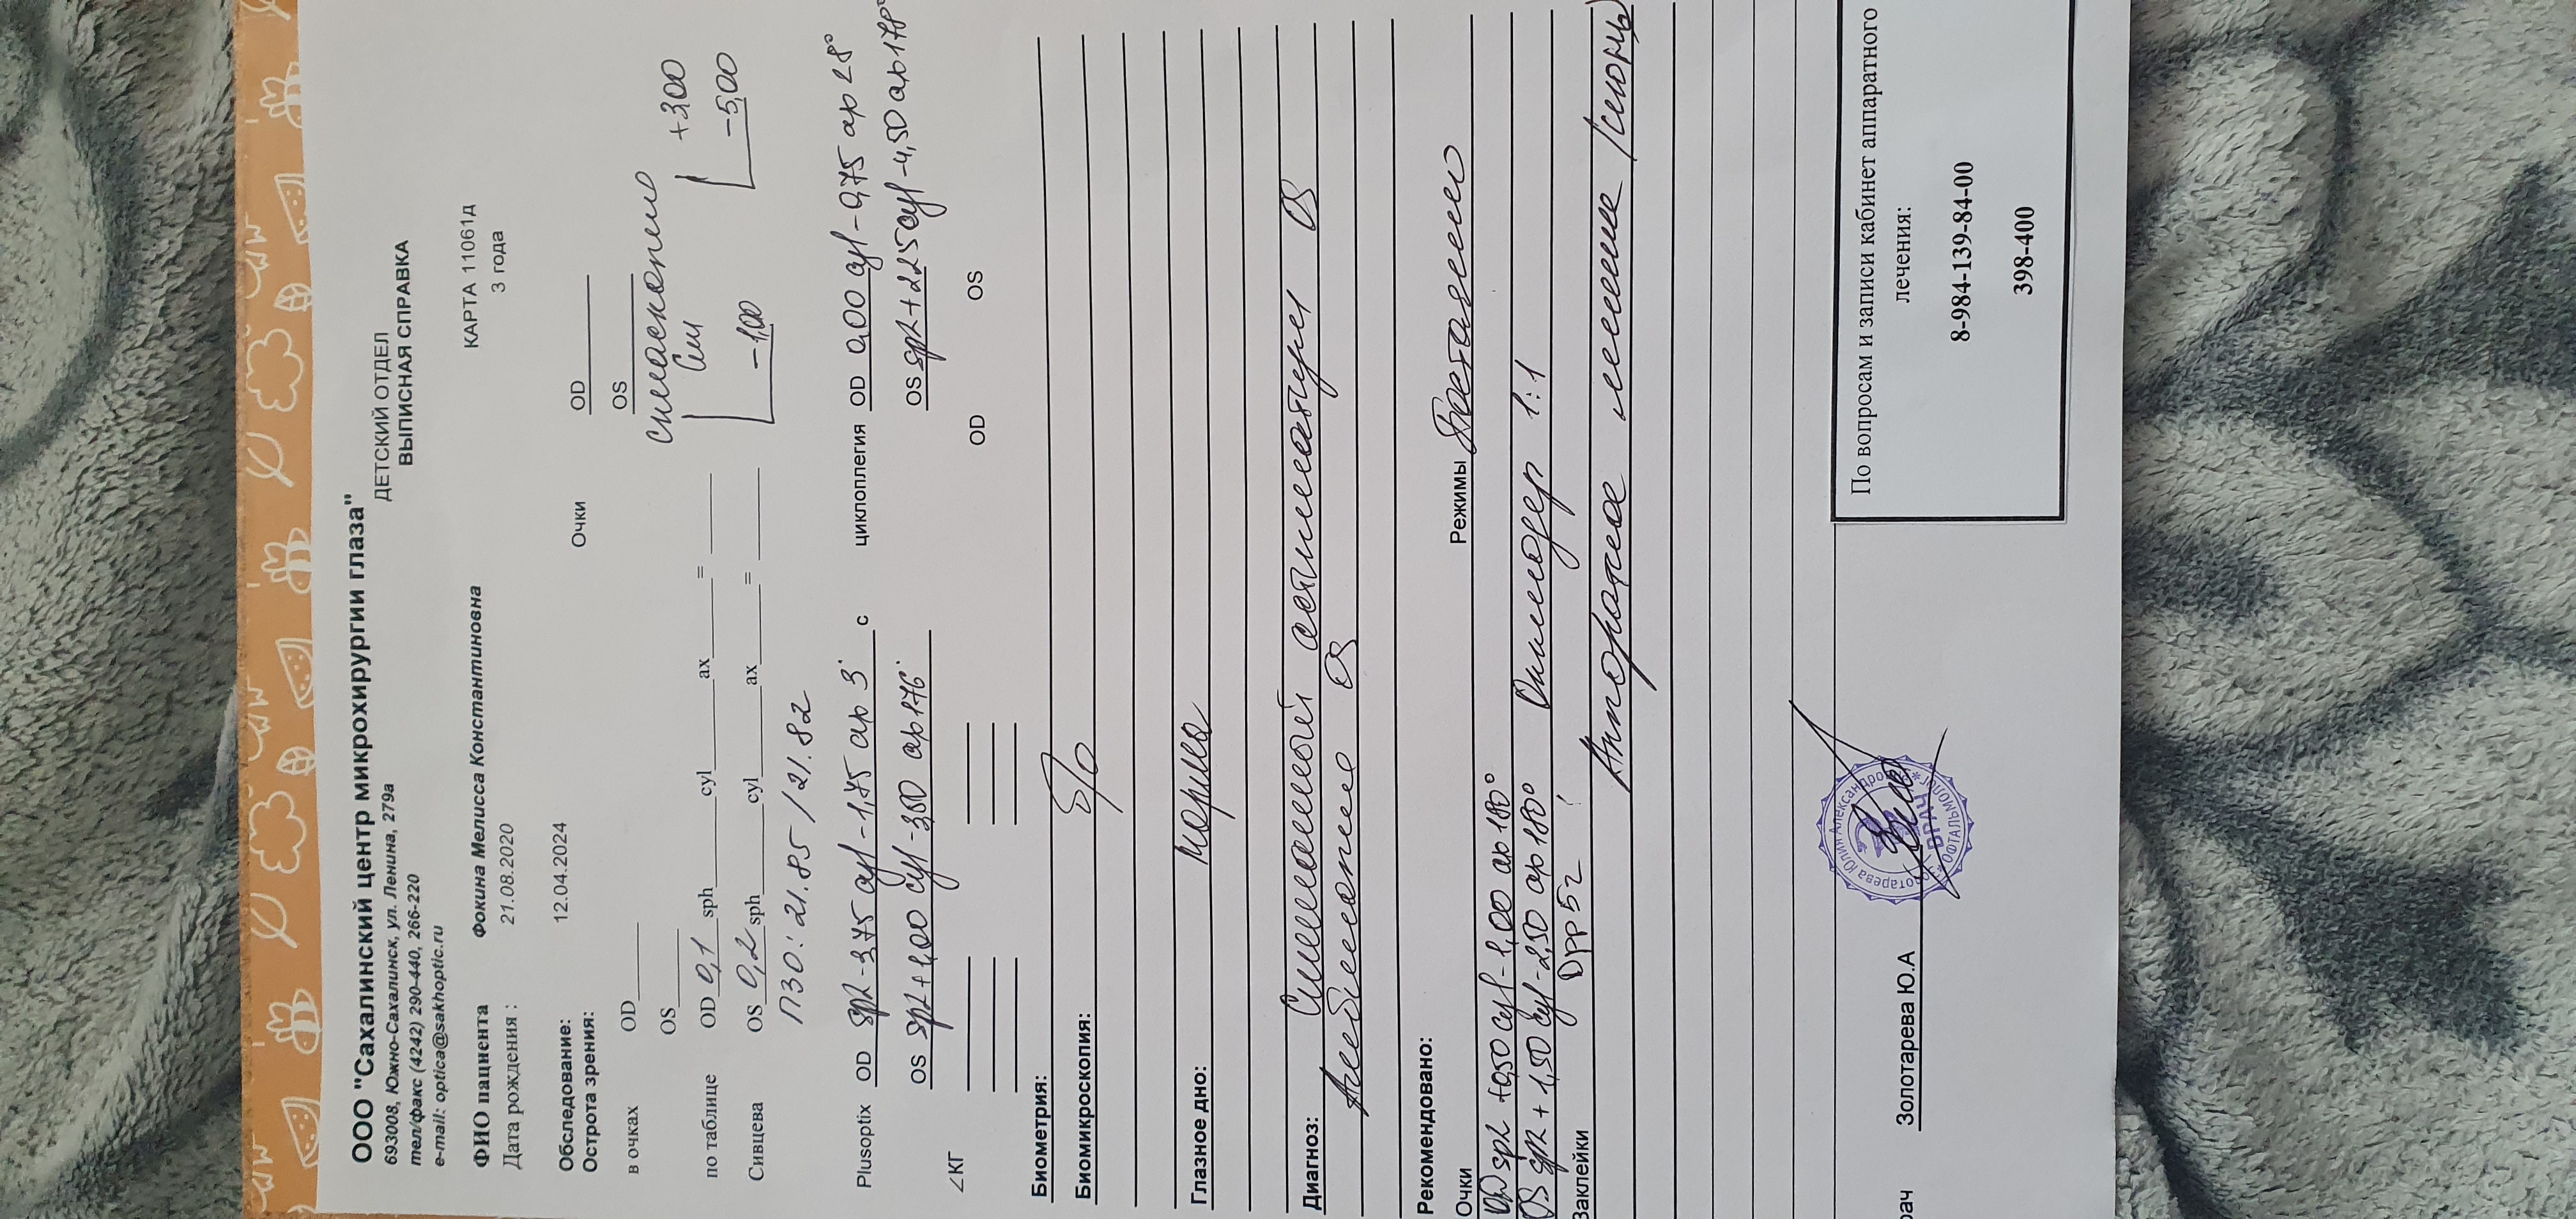 ООО "Сахалинский центр микрохирургии глаза"
693008, Южно-Сахалинск, ул. Ленина, 279а
тел/факс (4242) 290-440, 266-220
e-mail: optica@sakhoptic.ru
ДЕТСКИЙ ОТДЕЛ
ВЫПИСНАЯ СПРАВКА
ФИО пациента Фокина Мелисса Константиновна КАРТА 11061д
Дата рождения : 21.08.2020 3 года
Обследование: 12.04.2024
Острота зрения: Очки OD
в очках OD OS
OS
по таблице OD 0,1 sph cyl ax =
Сивцева OS 0,2 sph cyl ax =
+3,00
-1,00 -5,00
ПЗО: 21.85 / 21.82
Plusoptix OD sph -3,75 cyl -1,75 ax 3° с циклоплегия OD 0,00 cyl -0,75 ax 28°
OS sph +1,00 cyl -3,00 ax 176° OS sph +2,25 cyl -4,50 ax 178°
<КГ OD OS
Биометрия:
Биомикроскопия: б/о
Глазное дно: норма
Диагноз: Смешанный астигматизм OS
Амблиопия OS
Рекомендовано:
Очки Режимы Постоянно
OD sph +0,50 cyl -1,00 ax 180°
OS sph +1,50 cyl -2,50 ax 180° 1:1
Заклейки Dpp 52
Аппаратное лечение
По вопросам и записи кабинет аппаратного
лечения:
8-984-139-84-00
398-400
рач Золотарева Ю.А
ВРАЧ
ОФТАЛЬМОЛОГ